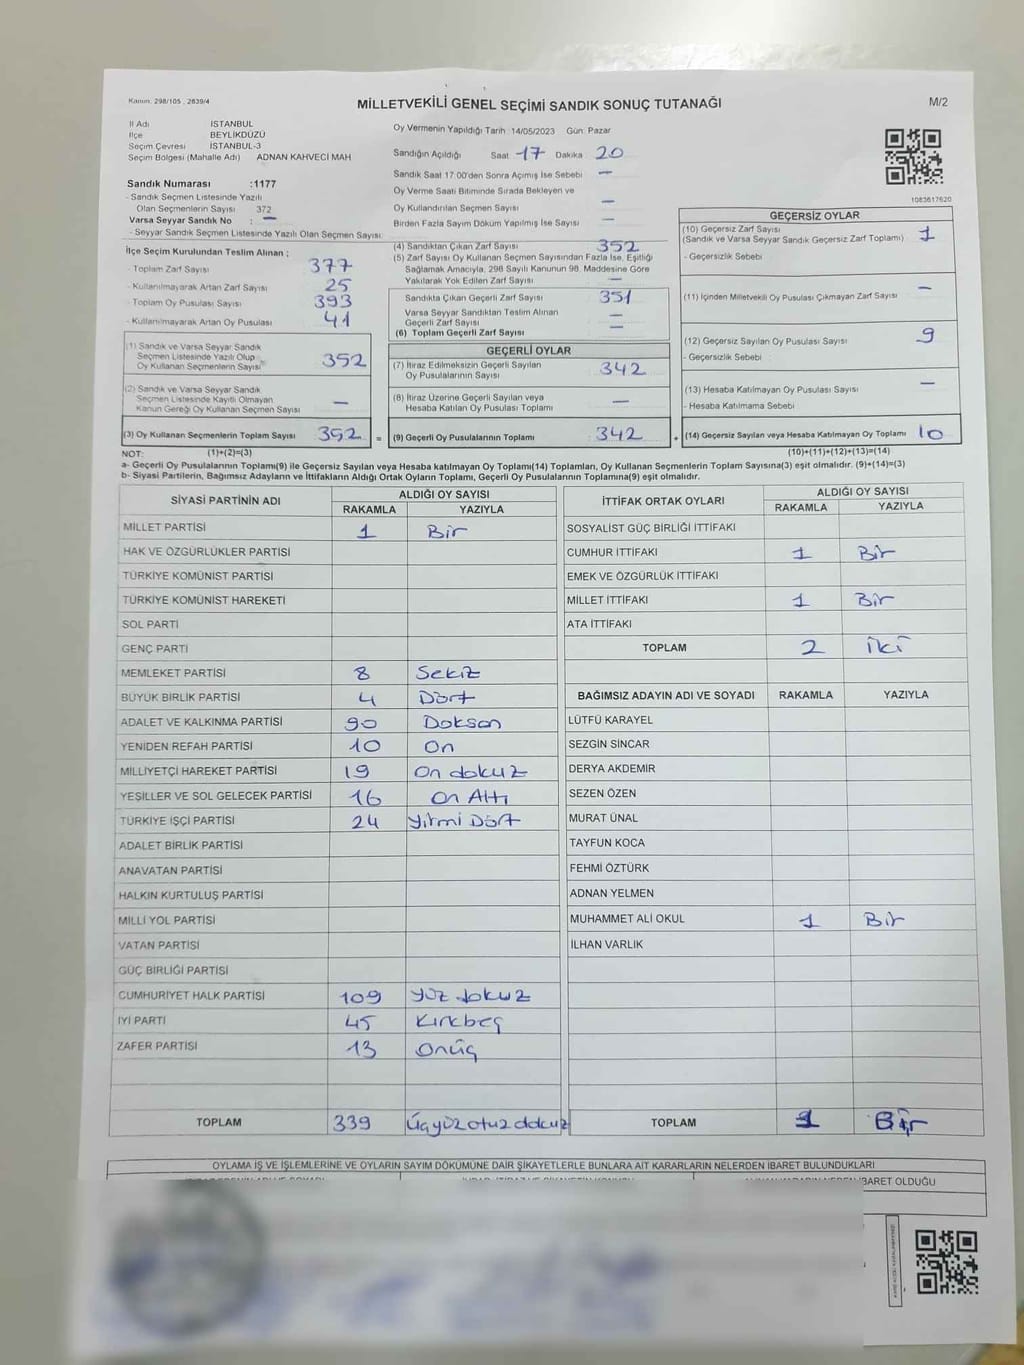 Kanun, 298/105 , 2839/4
MİLLETVEKİLİ GENEL SEÇİMİ SANDIK SONUÇ TUTANAĞI
M/2
İl Adı İSTANBUL
İlçe BEYLİKDÜZÜ
Seçim Çevresi İSTANBUL-3
Seçim Bölgesi (Mahalle Adı) ADNAN KAHVECİ MAH
Oy Vermenin Yapıldığı Tarih 14/05/2023 Gün: Pazar
Sandığın Açıldığı Saat 17 Dakika 20
Sandık Saat 17:00'den Sonra Açımış İse Sebebi —
Oy Verme Saati Bitiminde Sırada Bekleyen ve
Oy Kullandırılan Seçmen Sayısı —
Birden Fazla Sayım Döküm Yapılmış İse Sayısı —
1083617620
Sandık Numarası :1177
- Sandık Seçmen Listesinde Yazılı
Olan Seçmenlerin Sayısı 372
Varsa Seyyar Sandık No : —
- Seyyar Sandık Seçmen Listesinde Yazılı Olan Seçmen Sayısı:
İlçe Seçim Kurulundan Teslim Alınan ;
- Toplam Zarf Sayısı 377
- Kullanılmayarak Artan Zarf Sayısı 25
- Toplam Oy Pusulası Sayısı 393
- Kullanılmayarak Artan Oy Pusulası 41
(1) Sandık ve Varsa Seyyar Sandık
Seçmen Listesinde Yazılı Olup
Oy Kullanan Seçmenlerin Sayısı 352
(2) Sandık ve Varsa Seyyar Sandık
Seçmen Listesinde Kayıtlı Olmayan
Kanun Gereği Oy Kullanan Seçmen Sayısı —
(3) Oy Kullanan Seçmenlerin Toplam Sayısı 352 =
(4) Sandıktan Çıkan Zarf Sayısı 352
(5) Zarf Sayısı Oy Kullanan Seçmen Sayısından Fazla İse, Eşitliği
Sağlamak Amacıyla, 298 Sayılı Kanunun 98. Maddesine Göre
Yakılarak Yok Edilen Zarf Sayısı —
Sandıkta Çıkan Geçerli Zarf Sayısı 351
Varsa Seyyar Sandıktan Teslim Alınan
Geçerli Zarf Sayısı —
(6) Toplam Geçerli Zarf Sayısı —
GEÇERLİ OYLAR
(7) İtiraz Edilmeksizin Geçerli Sayılan
Oy Pusulalarının Sayısı 342
(8) İtiraz Üzerine Geçerli Sayılan veya
Hesaba Katılan Oy Pusulası Toplamı —
(9) Geçerli Oy Pusulalarının Toplamı 342 +
GEÇERSİZ OYLAR
(10) Geçersiz Zarf Sayısı 1
(Sandık ve Varsa Seyyar Sandık Geçersiz Zarf Toplamı)
- Geçersizlik Sebebi
(11) İçinden Milletvekili Oy Pusulası Çıkmayan Zarf Sayısı —
(12) Geçersiz Sayılan Oy Pusulası Sayısı 9
- Geçersizlik Sebebi
(13) Hesaba Katılmayan Oy Pusulası Sayısı —
- Hesaba Katılmama Sebebi
(14) Geçersiz Sayılan veya Hesaba Katılmayan Oy Pusulası Toplamı 10
NOT: (1)+(2)=(3) (10)+(11)+(12)+(13)=(14)
a- Geçerli Oy Pusulalarının Toplamı(9) ile Geçersiz Sayılan veya Hesaba katılmayan Oy Toplamı(14) Toplamları, Oy Kullanan Seçmenlerin Toplam Sayısına(3) eşit olmalıdır. (9)+(14)=(3)
b- Siyasi Partilerin, Bağımsız Adayların ve İttifakların Aldığı Ortak Oyların Toplamı, Geçerli Oy Pusulalarının Toplamına(9) eşit olmalıdır.
SİYASİ PARTİNİN ADI ALDIĞI OY SAYISI
RAKAMLA YAZIYLA
MİLLET PARTİSİ 1 Bir
HAK VE ÖZGÜRLÜKLER PARTİSİ
TÜRKİYE KOMÜNİST PARTİSİ
TÜRKİYE KOMÜNİST HAREKETİ
SOL PARTİ
GENÇ PARTİ
MEMLEKET PARTİSİ 8 Sekiz
BÜYÜK BİRLİK PARTİSİ 4 Dört
ADALET VE KALKINMA PARTİSİ 90 Doksan
YENİDEN REFAH PARTİSİ 10 On
MİLLİYETÇİ HAREKET PARTİSİ 19 On dokuz
YEŞİLLER VE SOL GELECEK PARTİSİ 16 On Altı
TÜRKİYE İŞÇİ PARTİSİ 24 Yirmi Dört
ADALET BİRLİK PARTİSİ
ANAVATAN PARTİSİ
HALKIN KURTULUŞ PARTİSİ
MİLLİ YOL PARTİSİ
VATAN PARTİSİ
GÜÇ BİRLİĞİ PARTİSİ
CUMHURİYET HALK PARTİSİ 109 Yüz dokuz
İYİ PARTİ 45 Kırkbeş
ZAFER PARTİSİ 13 Onüç
TOPLAM 339 Üçyüzotuzdokuz
İTTİFAK ORTAK OYLARI ALDIĞI OY SAYISI
RAKAMLA YAZIYLA
SOSYALİST GÜÇ BİRLİĞİ İTTİFAKI
CUMHUR İTTİFAKI 1 Bir
EMEK VE ÖZGÜRLÜK İTTİFAKI
MİLLET İTTİFAKI 1 Bir
ATA İTTİFAKI
TOPLAM 2 İki
BAĞIMSIZ ADAYIN ADI VE SOYADI RAKAMLA YAZIYLA
LÜTFÜ KARAYEL
SEZGİN SİNCAR
DERYA AKDEMİR
SEZEN ÖZEN
MURAT ÜNAL
TAYFUN KOCA
FEHMİ ÖZTÜRK
ADNAN YELMEN
MUHAMMET ALİ OKUL 1 Bir
İLHAN VARLIK
TOPLAM 1 Bir
OYLAMA İŞ VE İŞLEMLERİNE VE OYLARIN SAYIM DÖKÜMÜNE DAİR ŞİKAYETLERLE BUNLARA AİT KARARLARIN NELERDEN İBARET BULUNDUKLARI
İBARET OLDUĞU